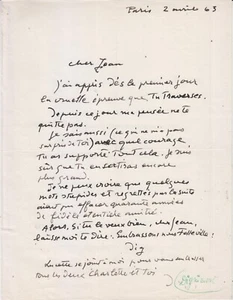 Paris 2 avril 63
Cher Jean
J'ai appris dès le premier jour
la cruelle épreuve que tu traverses.
Depuis ce jour ma pensée ne te
quitte pas.
Je sais aussi (ce qui ne m'a pas
surpris de toi) avec quel courage
Tu as supporté tout cela. Je suis
sûr que tu en sortiras encore
plus grand.
Je ne peux croire que quelques
mots stupides et regrettés par la suite
aient pu effacer quarante années
de fidèle et entière amitié.
Alors, si tu le veux bien, cher Jean,
laisse moi te dire : Embrassons nous
Dig
Lucette se joint à moi pour vous embrasser
tous les deux Charlotte et toi